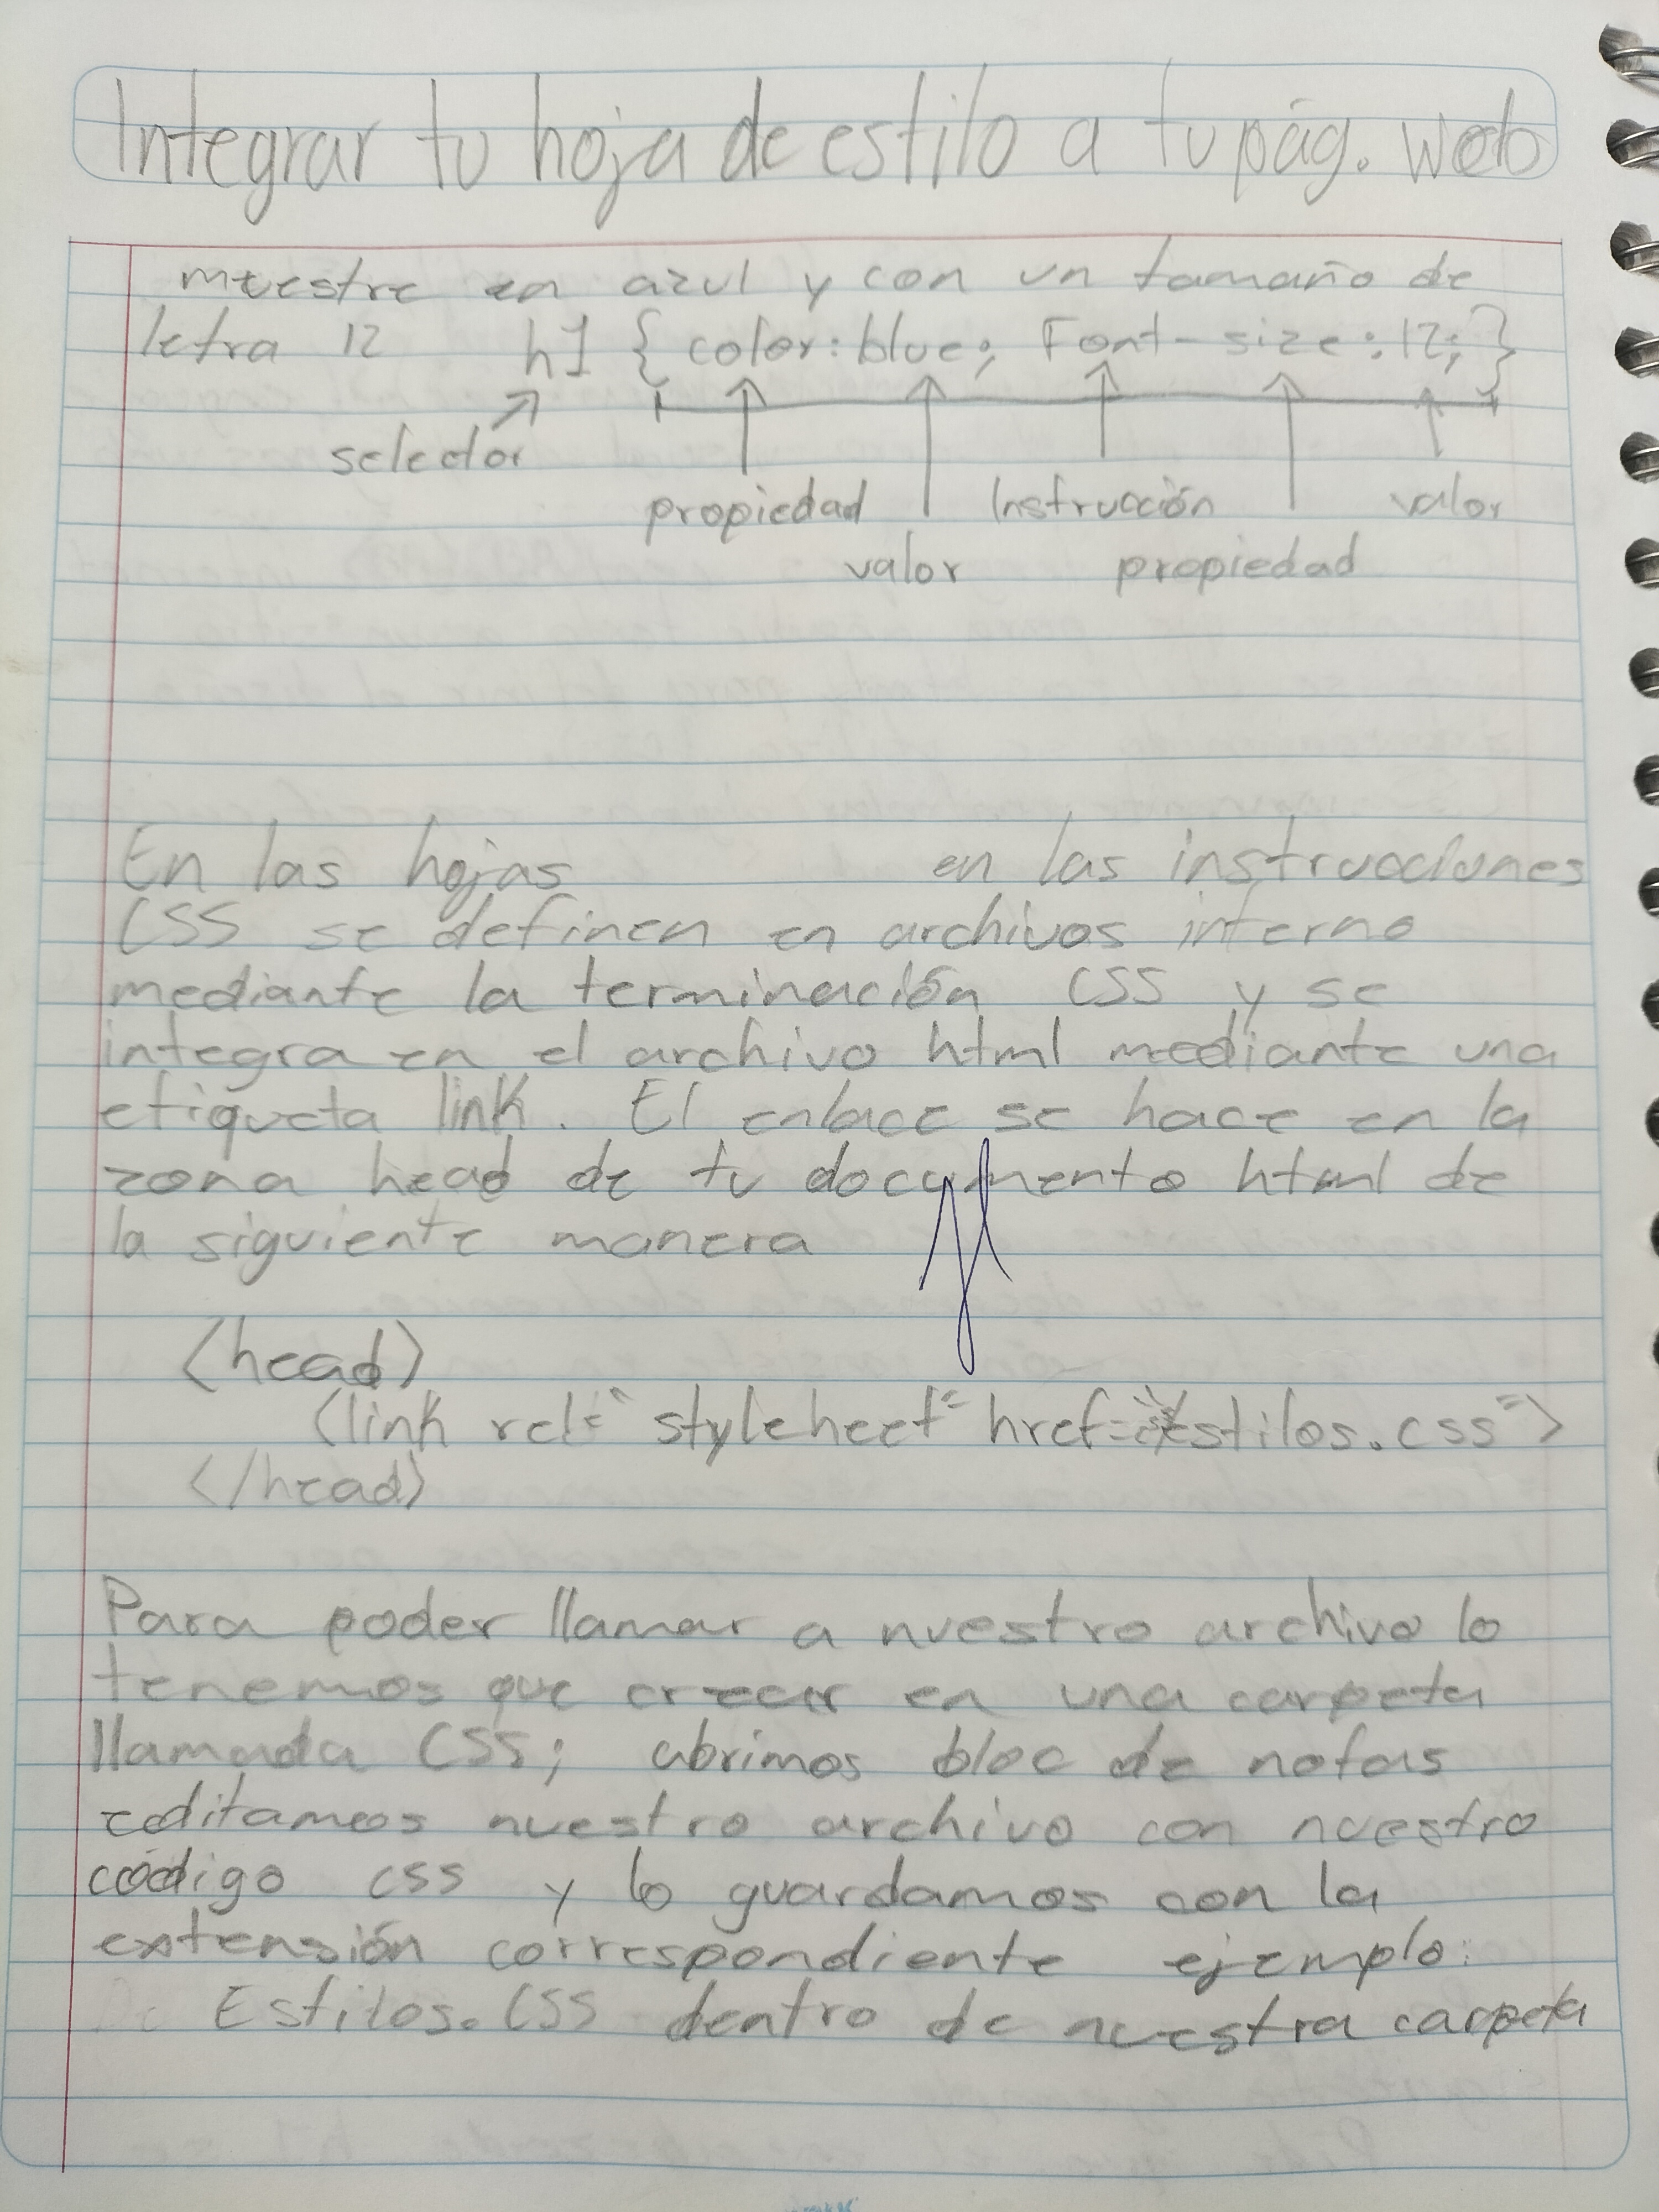 Integrar tu hoja de estilo a tu pág. web
muestre en azul y con un tamaño de
letra 12 h1 { color: blue; Font-size: 12; }
selector
propiedad Instrucción valor
valor propiedad
En las hojas en las instrucciones
CSS se definen en archivos interno
mediante la terminación CSS y se
integra en el archivo html mediante una
etiqueta link. El enlace se hace en la
zona head de tu documento html de
la siguiente manera
<head>
<link rel="styleheet" href="estilos.css">
</head>
Para poder llamar a nuestro archivo lo
tenemos que crear en una carpeta
llamada CSS; abrimos bloc de notas
editamos nuestro archivo con nuestro
código css y lo guardamos con la
extensión correspondiente ejemplo:
Estilos.CSS dentro de nuestra carpeta